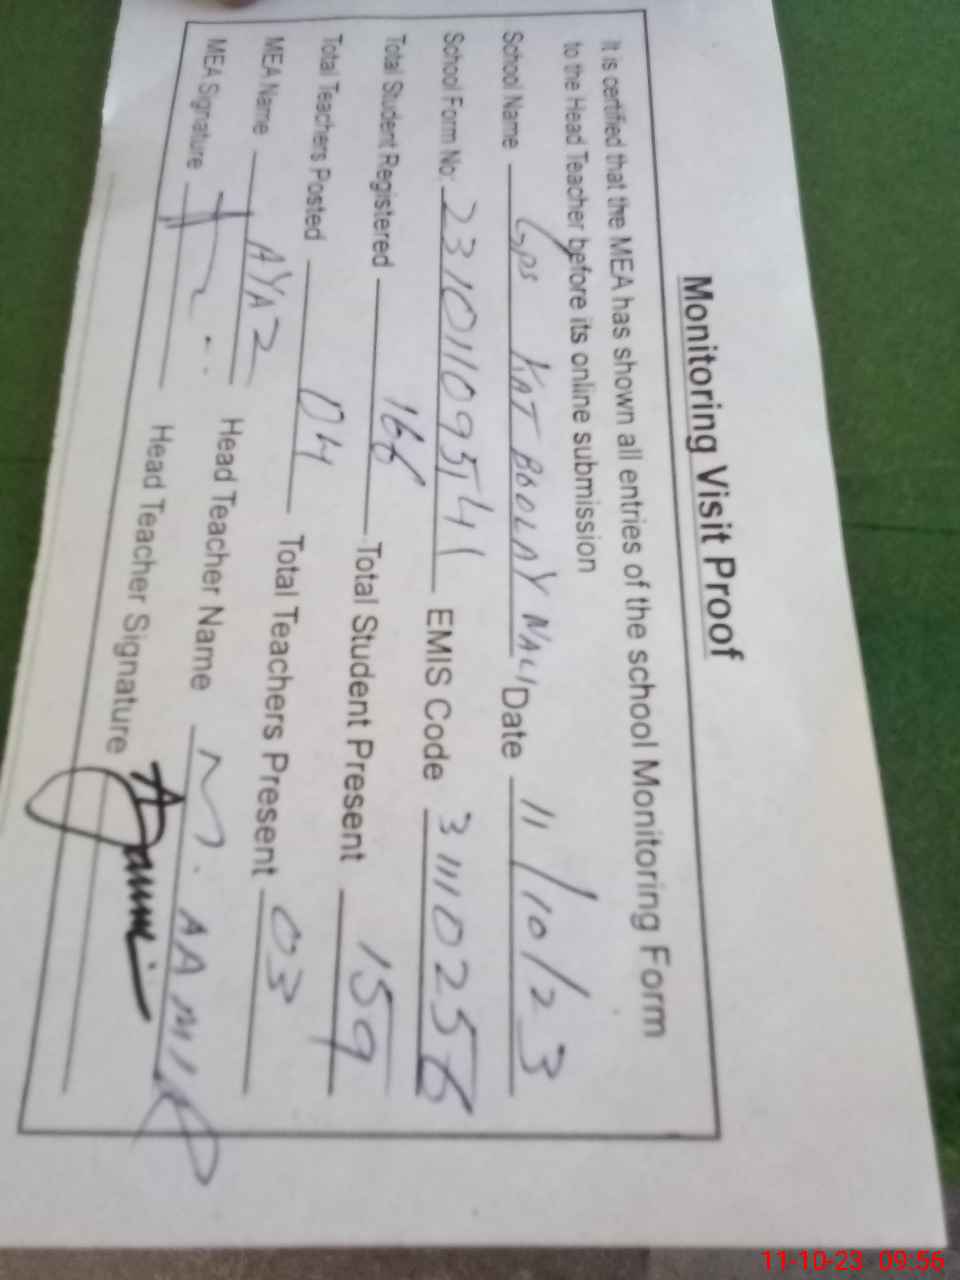 Monitoring Visit Proof
It is certified that the MEA has shown all entries of the school Monitoring Form
to the Head Teacher before its online submission
School Name Gps KAT BOOLAY WALI Date 11/10/23
School Form No: 231011095141 EMIS Code 31110256
Total Student Registered 166 Total Student Present 159
Total Teachers Posted 04 Total Teachers Present 03
MEA Name AYAZ Head Teacher Name M. AAMIR
MEA Signature Head Teacher Signature
11-10-23 09:56